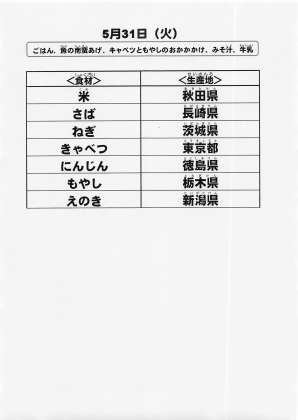 5月31日（火）
ごはん、魚の南蛮あげ、キャベツともやしのおかかかけ、みそ汁、牛乳
＜食材＞ ＜生産地＞
米 秋田県
さば 長崎県
ねぎ 茨城県
きゃべつ 東京都
にんじん 徳島県
もやし 栃木県
えのき 新潟県